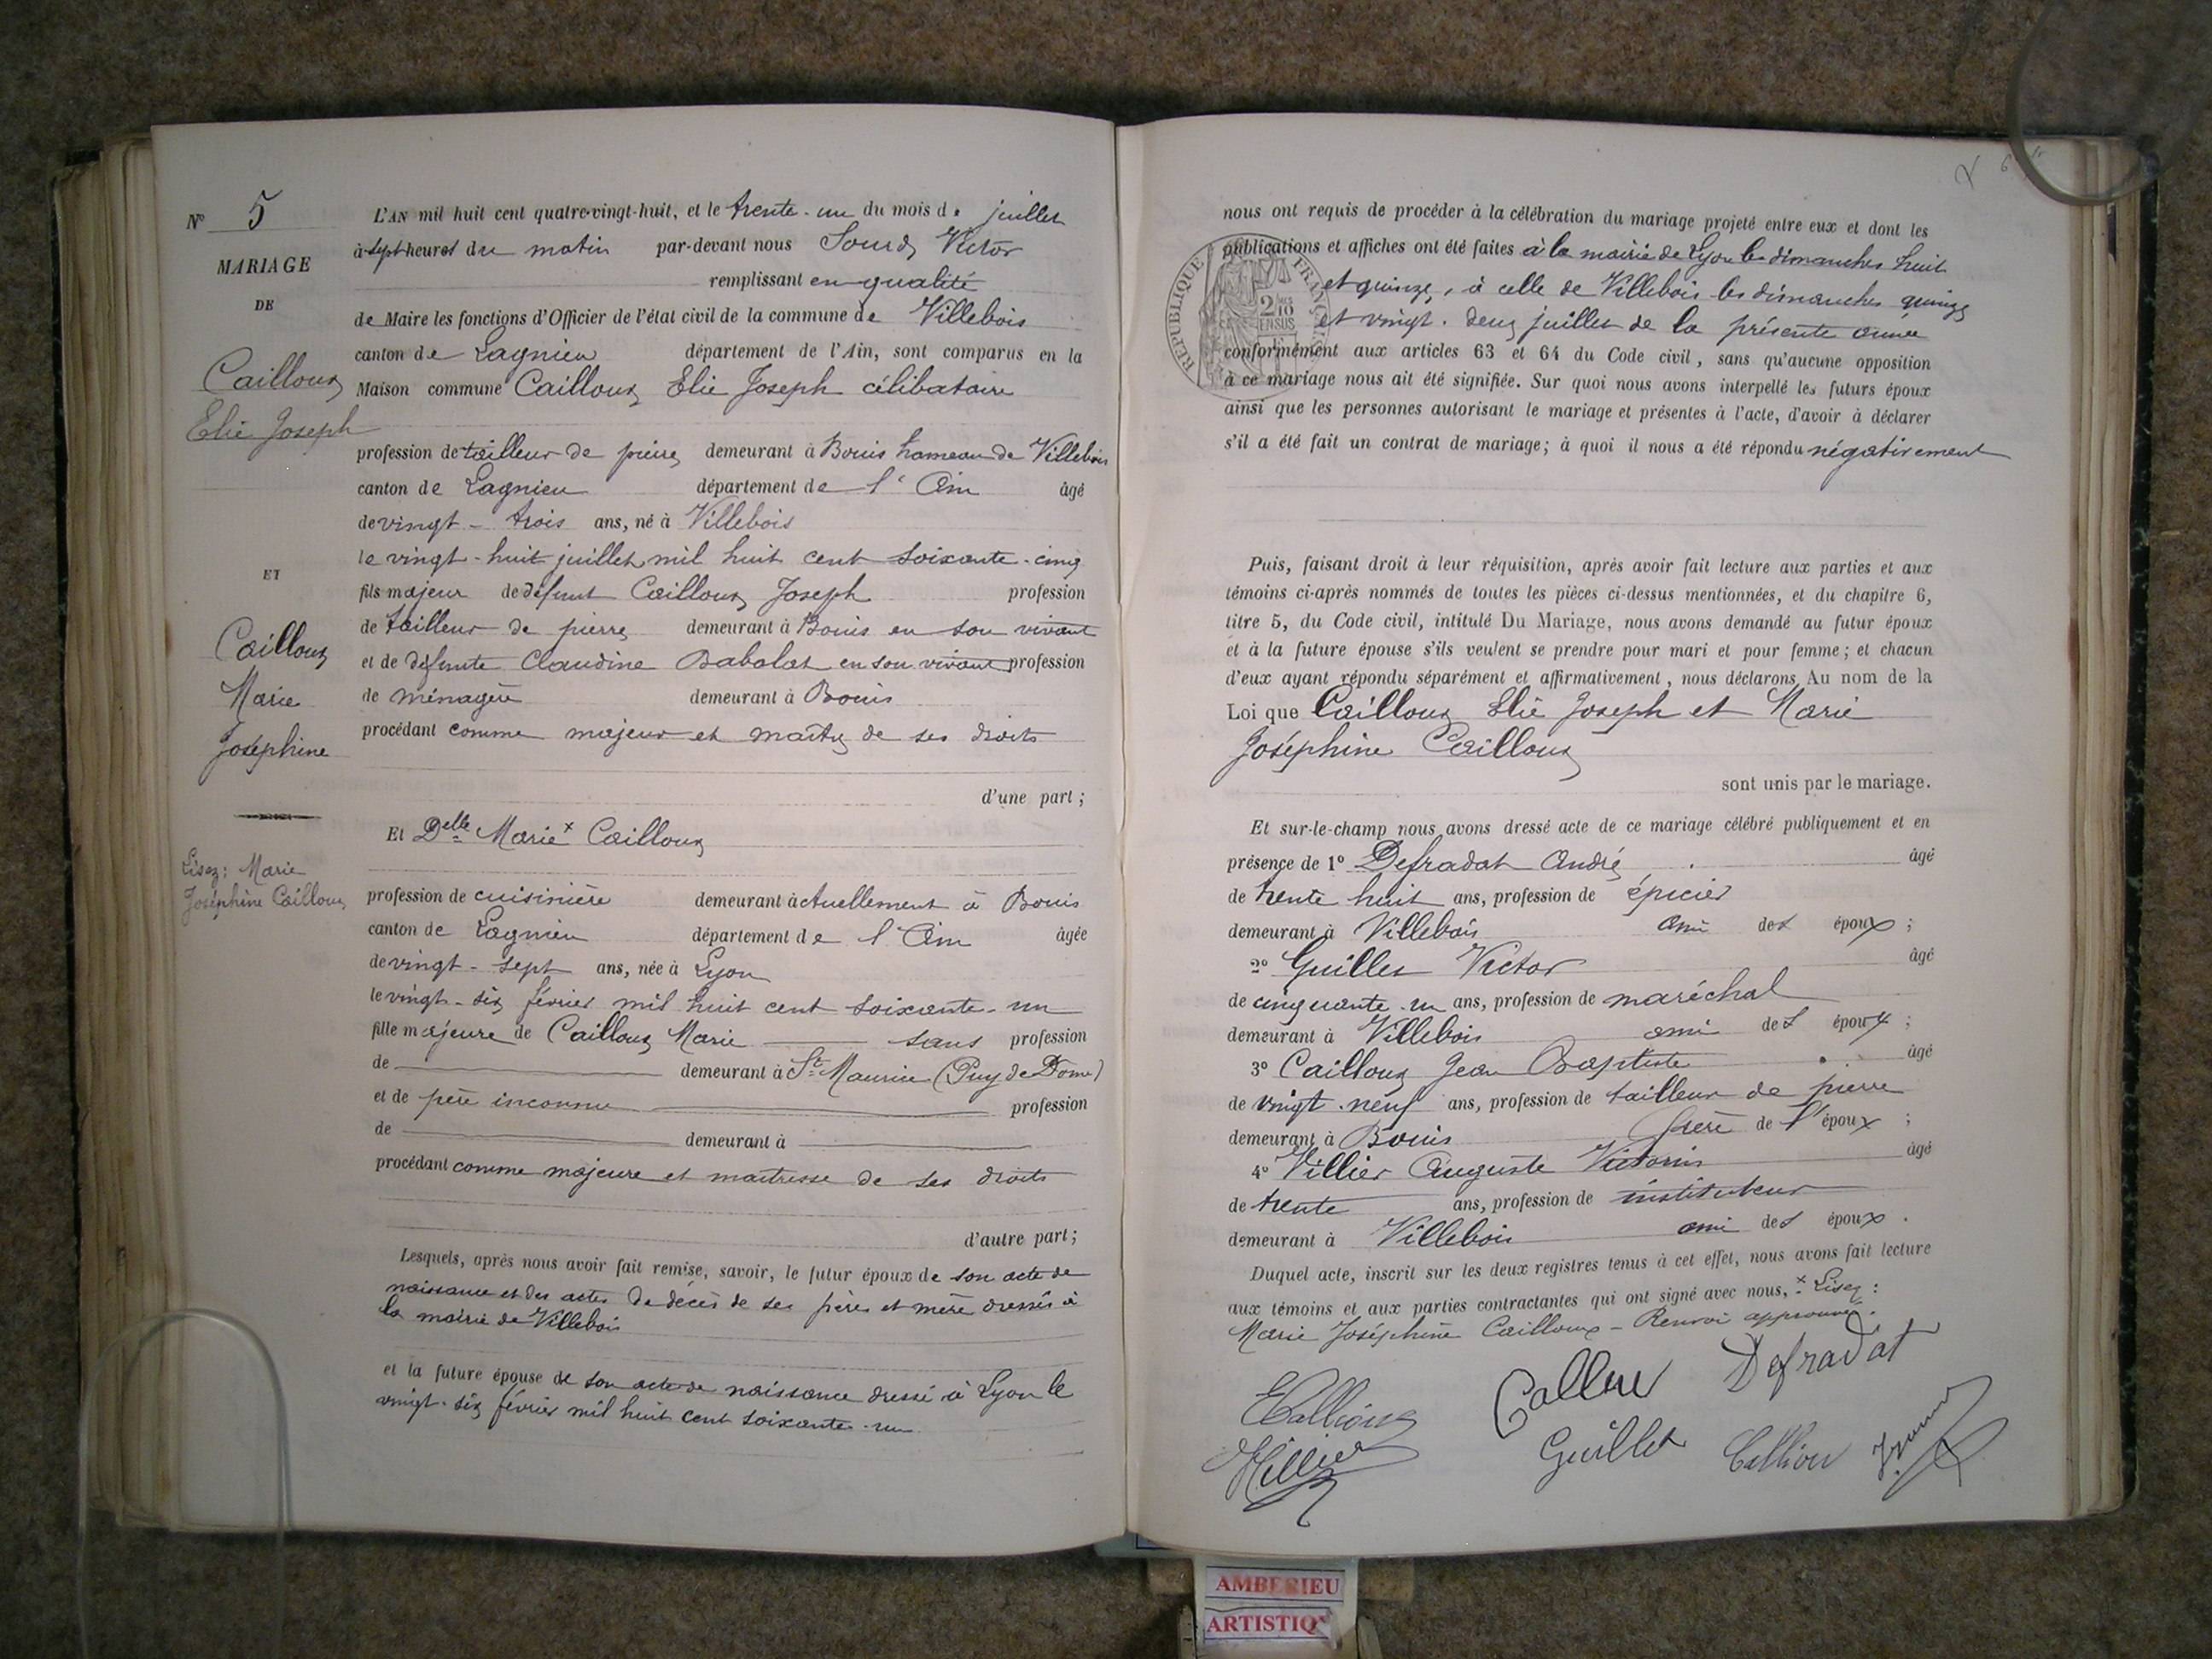 N° 5
MARIAGE
DE
Cailloux
Elie Joseph
ET
Cailloux
Marie
Joséphine
Lisez: Marie
Joséphine Cailloux
L'AN mil huit cent quatre-vingt-huit, et le trente-un du mois de juillet
à sept heures du matin par-devant nous Sourd Victor
remplissant en qualité
de Maire les fonctions d'Officier de l'état civil de la commune de Villebois
canton de Lagnieu département de l'Ain, sont comparus en la
Maison commune Cailloux Elie Joseph célibataire
profession de tailleur de pierre demeurant à Bouis hameau de Villebois
canton de Lagnieu département de l'Ain âgé
de vingt-trois ans, né à Villebois
le vingt-huit juillet mil huit cent soixante-cinq
fils majeur de défunt Cailloux Joseph profession
de tailleur de pierre demeurant à Bouis en son vivant
et de défunte Claudine Babolat en son vivant profession
de ménagère demeurant à Bouis
procédant comme majeur et maître de ses droits
d'une part;
Et Delle Marie x Cailloux
profession de cuisinière demeurant actuellement à Bouis
canton de Lagnieu département de l'Ain âgée
de vingt-sept ans, née à Lyon
le vingt-six février mil huit cent soixante-un
fille majeure de Cailloux Marie sans profession
de demeurant à St Maurice (Puy de Dome)
et de père inconnu profession
de demeurant à
procédant comme majeure et maîtresse de ses droits
d'autre part;
Lesquels, après nous avoir fait remise, savoir, le futur époux de son acte de
naissance et des actes de décès de ses pères et mère dressés à
la mairie de Villebois
et la future épouse de son acte de naissance dressé à Lyon le
vingt-six février mil huit cent soixante-un
nous ont requis de procéder à la célébration du mariage projeté entre eux et dont les
publications et affiches ont été faites à la mairie de Lyon les dimanches huit
et quinze, à celle de Villebois les dimanches quinze
et vingt-deux juillet de la présente année
conformément aux articles 63 et 64 du Code civil, sans qu'aucune opposition
à ce mariage nous ait été signifiée. Sur quoi nous avons interpellé les futurs époux
ainsi que les personnes autorisant le mariage et présentes à l'acte, d'avoir à déclarer
s'il a été fait un contrat de mariage; à quoi il nous a été répondu négativement
RÉPUBLIQUE FRANÇAISE
2/10 EN SUS
Puis, faisant droit à leur réquisition, après avoir fait lecture aux parties et aux
témoins ci-après nommés de toutes les pièces ci-dessus mentionnées, et du chapitre 6,
titre 5, du Code civil, intitulé Du Mariage, nous avons demandé au futur époux
et à la future épouse s'ils veulent se prendre pour mari et pour femme; et chacun
d'eux ayant répondu séparément et affirmativement, nous déclarons Au nom de la
Loi que Cailloux Elie Joseph et Marie
Joséphine Cailloux
sont unis par le mariage.
Et sur-le-champ nous avons dressé acte de ce mariage célébré publiquement et en
présence de 1° Defradat André âgé
de trente huit ans, profession de épicier
demeurant à Villebois ami des époux;
2° Guillet Victor âgé
de cinquante-un ans, profession de maréchal
demeurant à Villebois ami des époux;
3° Cailloux Jean Baptiste âgé
de vingt-neuf ans, profession de tailleur de pierre
demeurant à Bouis frère de l'époux;
4° Villier Auguste Victorin âgé
de trente ans, profession de instituteur
demeurant à Villebois ami des époux.
Duquel acte, inscrit sur les deux registres tenus à cet effet, nous avons fait lecture
aux témoins et aux parties contractantes qui ont signé avec nous, x Lisez:
Marie Joséphine Cailloux - Renvoi approuvé.
Defradat
Guillet
Villier
AMBERIEU
ARTISTIQ